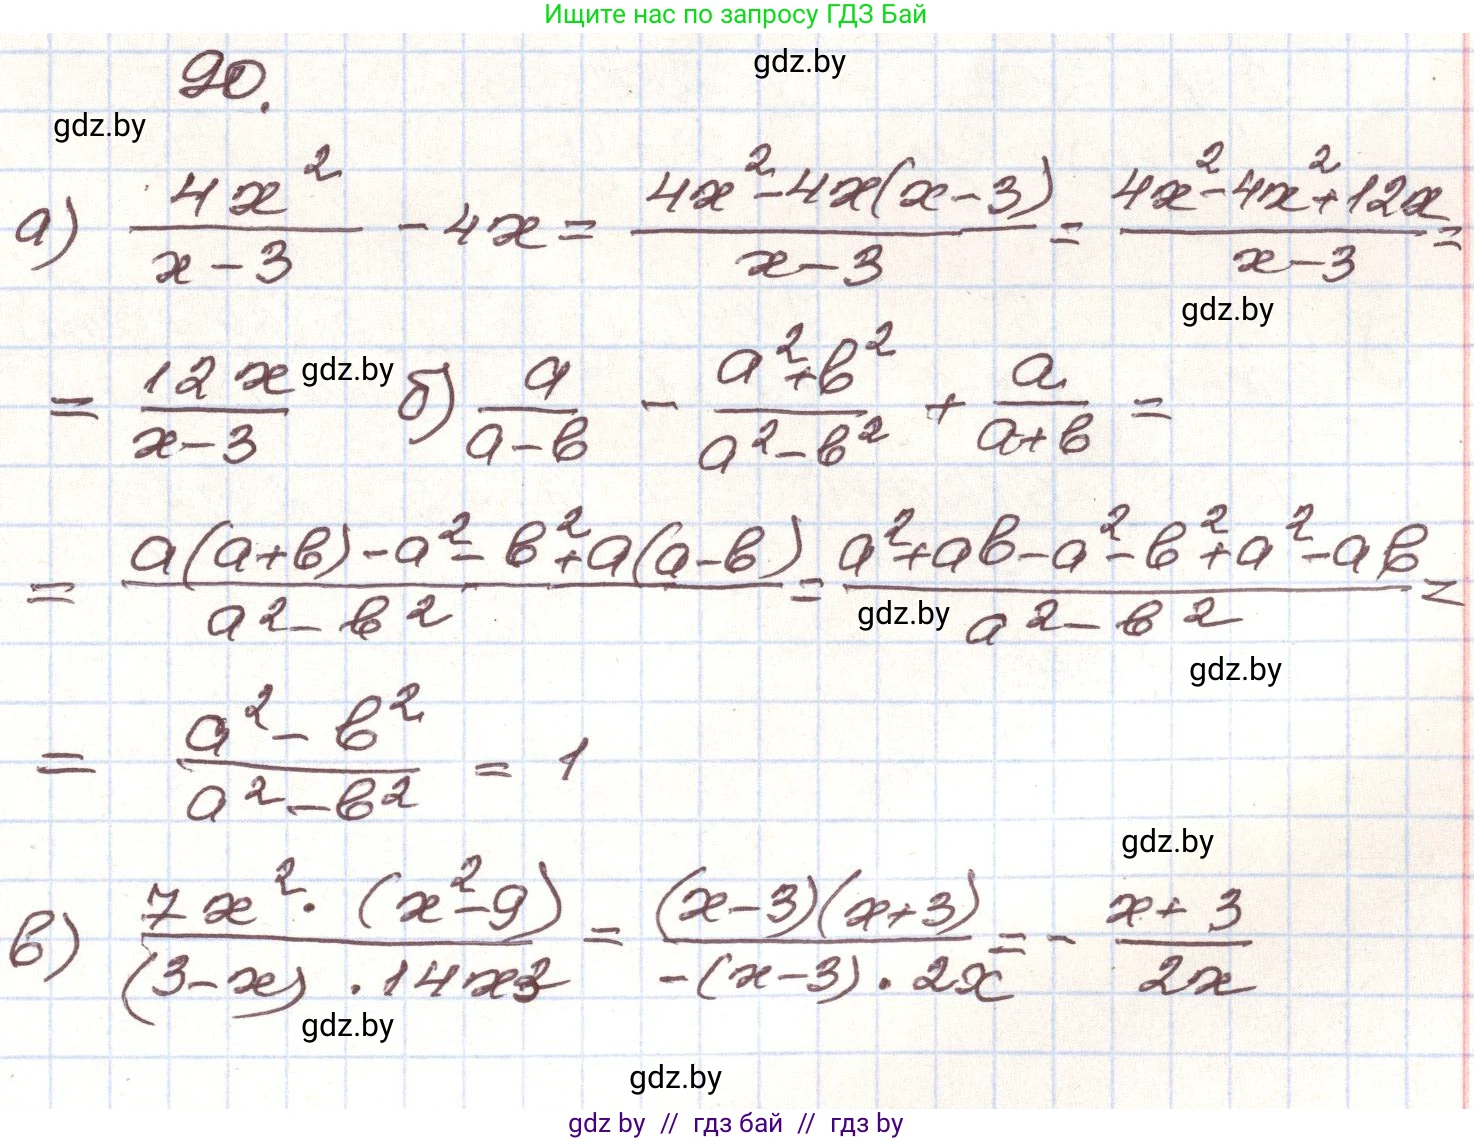 Ищите нас по запросу ГДЗ Бай
90.
gdz.by
gdz.by
а) 4x²/(x-3) - 4x = (4x²-4x(x-3))/(x-3) = (4x²-4x²+12x)/(x-3) =
gdz.by
= 12x/(x-3) gdz.by б) a/(a-b) - (a²+b²)/(a²-b²) + a/(a+b) =
= (a(a+b)-a²-b²+a(a-b))/(a²-b²) = (a²+ab-a²-b²+a²-ab)/(a²-b²) =
gdz.by
gdz.by
= (a²-b²)/(a²-b²) = 1
gdz.by
в) (7x²·(x²-9))/((3-x)·14x³) = ((x-3)(x+3))/(-(x-3)·2x) = - (x+3)/(2x)
gdz.by
gdz.by
gdz by // гдз бай // гдз by